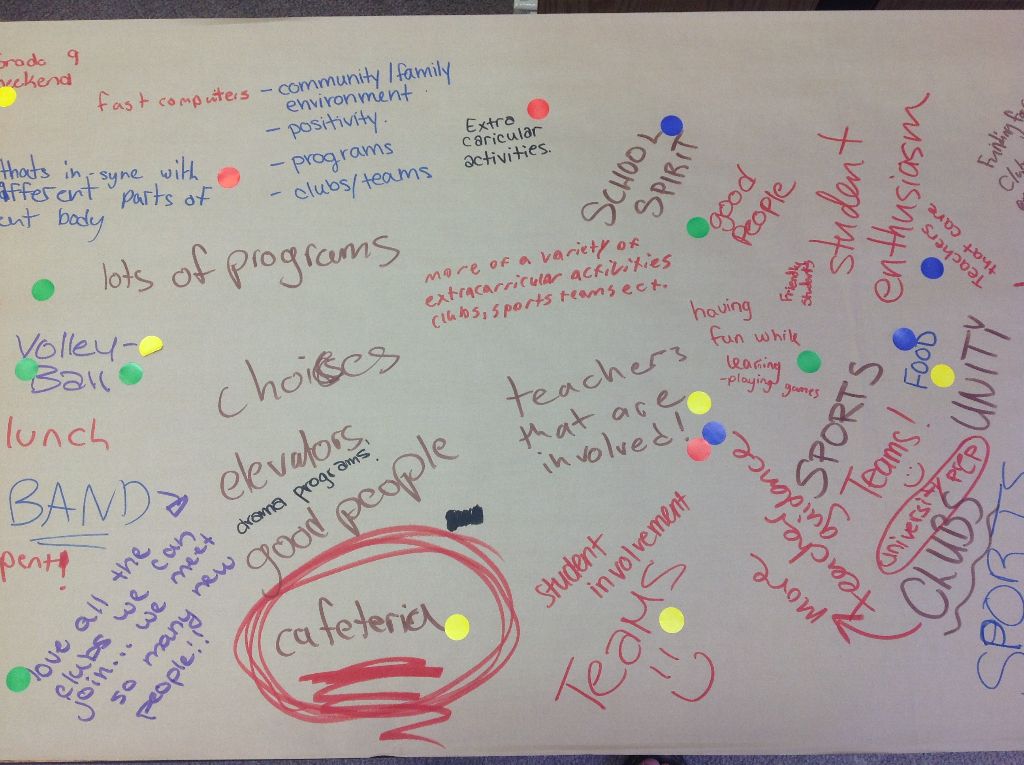 Grade 9
weekend
fast computers
- community/family
environment.
- positivity.
- programs
- clubs/teams
Extra
caricular
activities.
SCHOOL
SPIRIT
good
People
student
enthusiasm
teachers
that care
Friendly
Students
thats in sync with
different parts of
ent body
lots of programs
more of a variety of
extracarricular activities
clubs, sports teams ect.
having
fun while
learning
-playing games
Volley-
Ball
choices
teachers
that are
involved!
FOOD
UNITY
SPORTS
Teams!
university prep
CLUBS
SPORTS
more
teacher
guidance
lunch
elevators
drama programs.
good people
BAND
pent!
love all the
clubs we can
join... we met
so many new
people!!
cafeteria
student
involvement
TEAMS